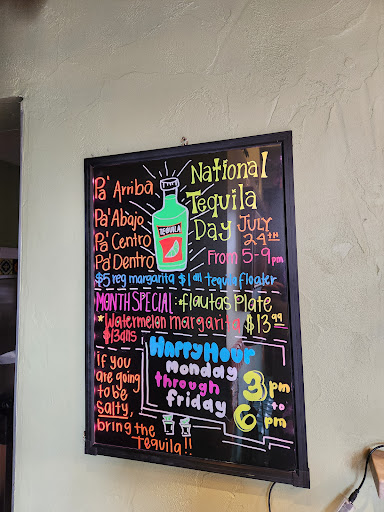 Pa' Arriba
Pa' Abajo
Pa' Centro
Pa' Dentro
TEQUILA
National
Tequila
Day JULY
24TH
From 5-9pm
$5 reg margarita $1 all tequila floater
MONTH SPECIAL: flautas Plate
*Watermelon margarita $13.99
$13
if you
are going
to be
salty,
bring the
Tequila!!
Happy Hour
Monday
through
friday
3pm
to
6pm